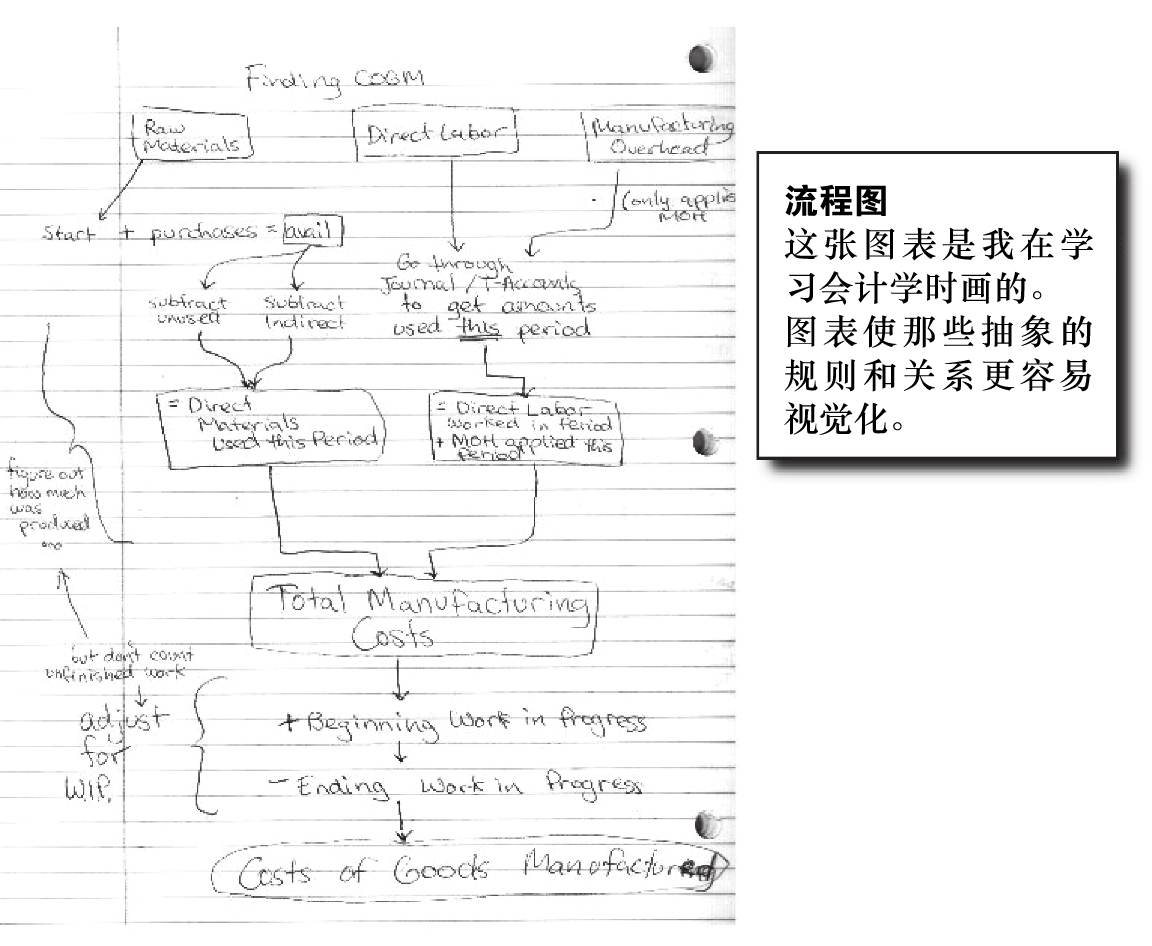 Finding COGM
Raw
Materials
Direct Labor
Manufacturing
Overhead
(only applie
MOH
Start + purchases = avail
subtract
unused
Subtract
Indirect
Go through
Journal / T-Accounts
to get amounts
used this period
= Direct
Materials
Used this Period
= Direct Labor
worked in period
+ MOH applied this
period
figure out
how much
was
produced
Total Manufacturing
Costs
but don't count
unfinished work
adjust
for
W.I.P.
+ Beginning Work in Progress
- Ending Work in Progress
Costs of Goods Manufactured
流程图
这张图表是我在学
习会计学时画的。
图表使那些抽象的
规则和关系更容易
视觉化。